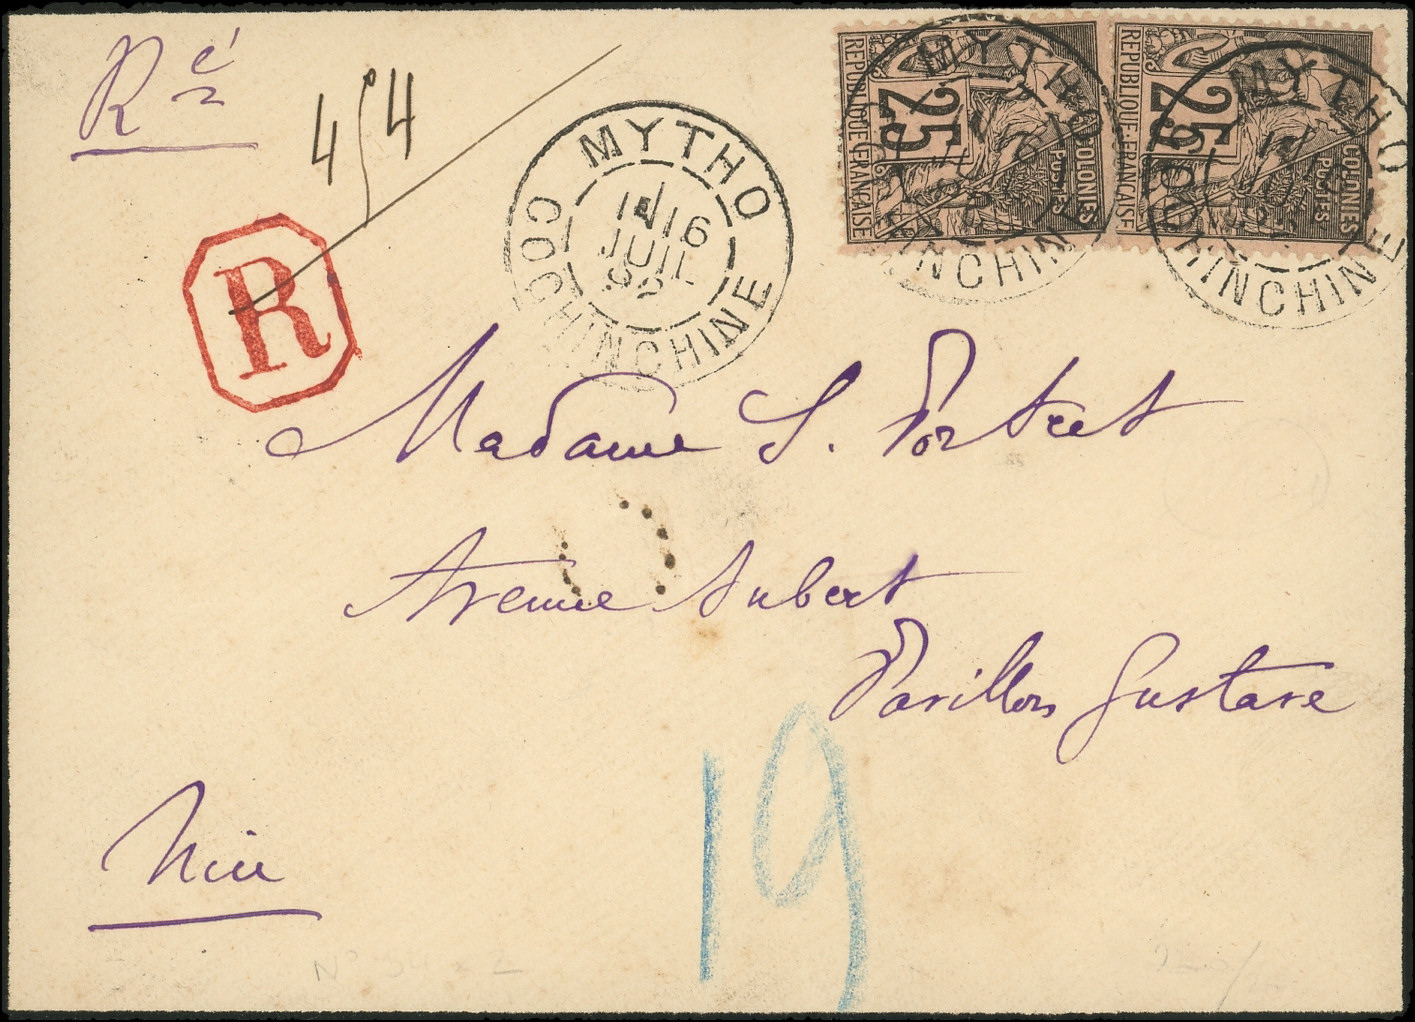 Ré
454
R
MYTHO
16
JUIL
92
COCHINCHINE
REPUBLIQUE FRANÇAISE
25
COLONIES
POSTES
MYTHO
COCHINCHINE
REPUBLIQUE FRANÇAISE
25
COLONIES
POSTES
MYTHO
COCHINCHINE
Madame S. Portret
Avenue Aubert
Pavillon Gustave
19
Nice